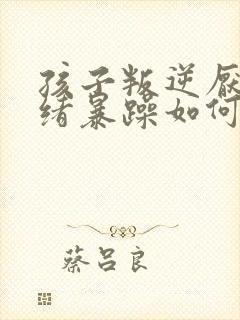 孩子叛逆厌
绪暴躁如何
蔡吕良